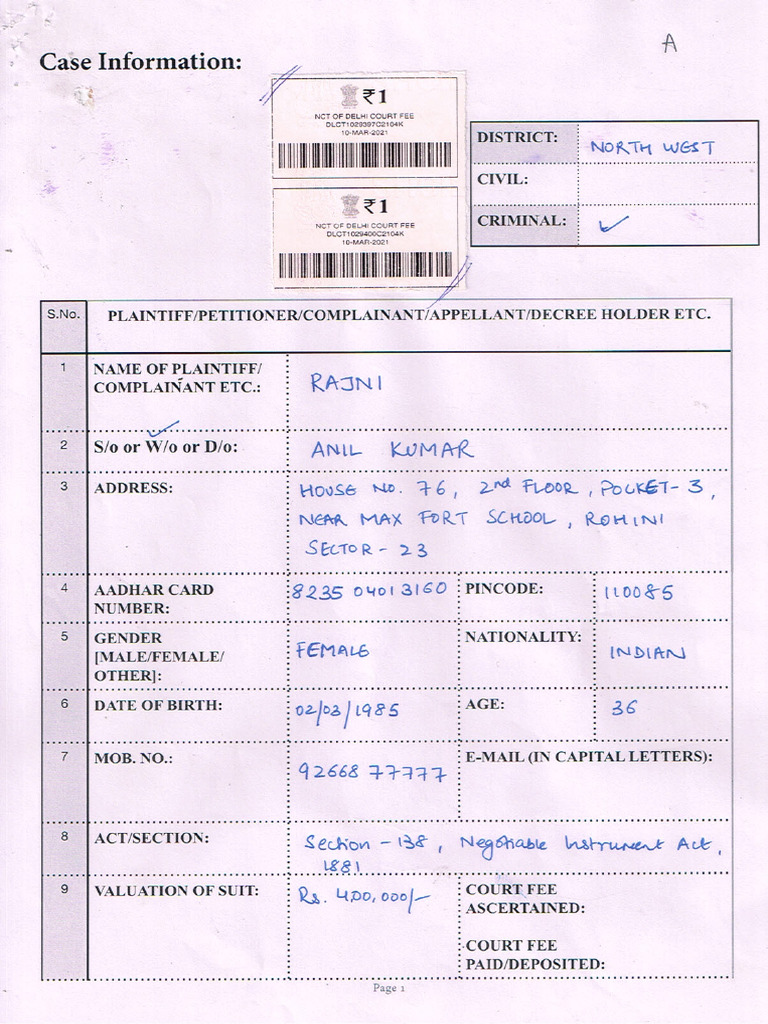 A
Case Information:
₹1
NCT OF DELHI COURT FEE
DLCT1029397C2104K
10-MAR-2021
₹1
NCT OF DELHI COURT FEE
DLCT1029400C2104K
10-MAR-2021
DISTRICT: NORTH WEST
CIVIL:
CRIMINAL: ✓
S.No. PLAINTIFF/PETITIONER/COMPLAINANT/APPELLANT/DECREE HOLDER ETC.
1 NAME OF PLAINTIFF/
COMPLAINANT ETC.: RAJNI
2 S/o or W/o or D/o: ANIL KUMAR
3 ADDRESS: HOUSE NO. 76, 2nd FLOOR, POCKET-3,
NEAR MAX FORT SCHOOL, ROHINI
SECTOR-23
4 AADHAR CARD
NUMBER: 8235 0401 3160 PINCODE: 110085
5 GENDER
[MALE/FEMALE/
OTHER]: FEMALE NATIONALITY: INDIAN
6 DATE OF BIRTH: 02/03/1985 AGE: 36
7 MOB. NO.: 92668 77777 E-MAIL (IN CAPITAL LETTERS):
8 ACT/SECTION: Section - 138, Negotiable Instrument Act,
1881
9 VALUATION OF SUIT: Rs. 400,000/- COURT FEE
ASCERTAINED:
COURT FEE
PAID/DEPOSITED:
Page 1